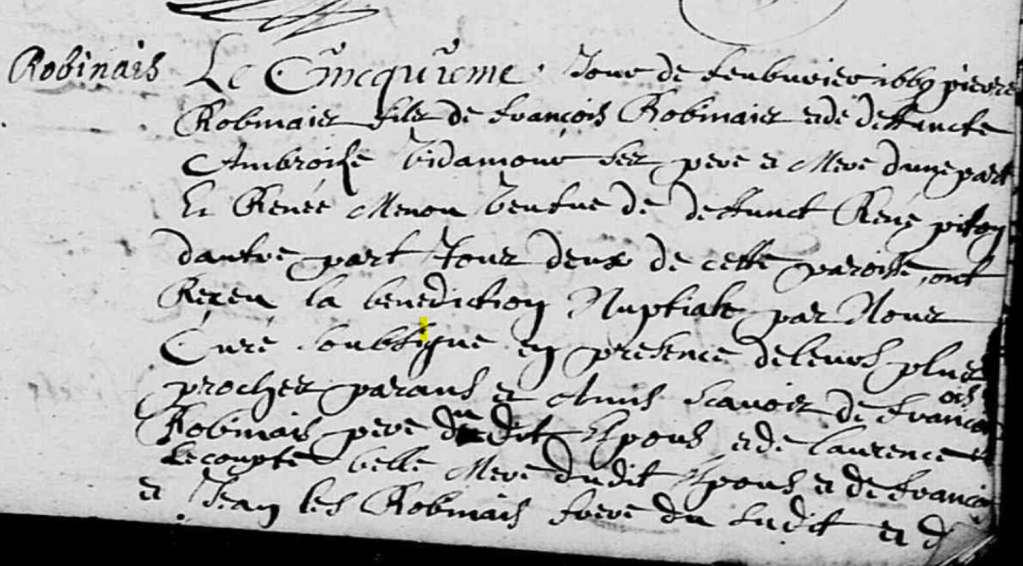 Robinais Le Cincquieme Jour de feubvrier 1669 pierre
Robinais filz de françois Robinais et de deffuncte
Ambroise Vidamour ses pere et Mere dune part
Et Renée Menou Veufve de deffunct René piton
dautre part Tous deux de cette paroisse, ont
Receu la benediction Nuptiale par Nous
Curé soubsigne en presence de leurs plus
proches parans et Amis scavoir de françois
Robinais pere dudit Espous et de laurence
Lecompte belle Mere dudit Espous et de francois
et Jean les Robinais frere du sudit et d